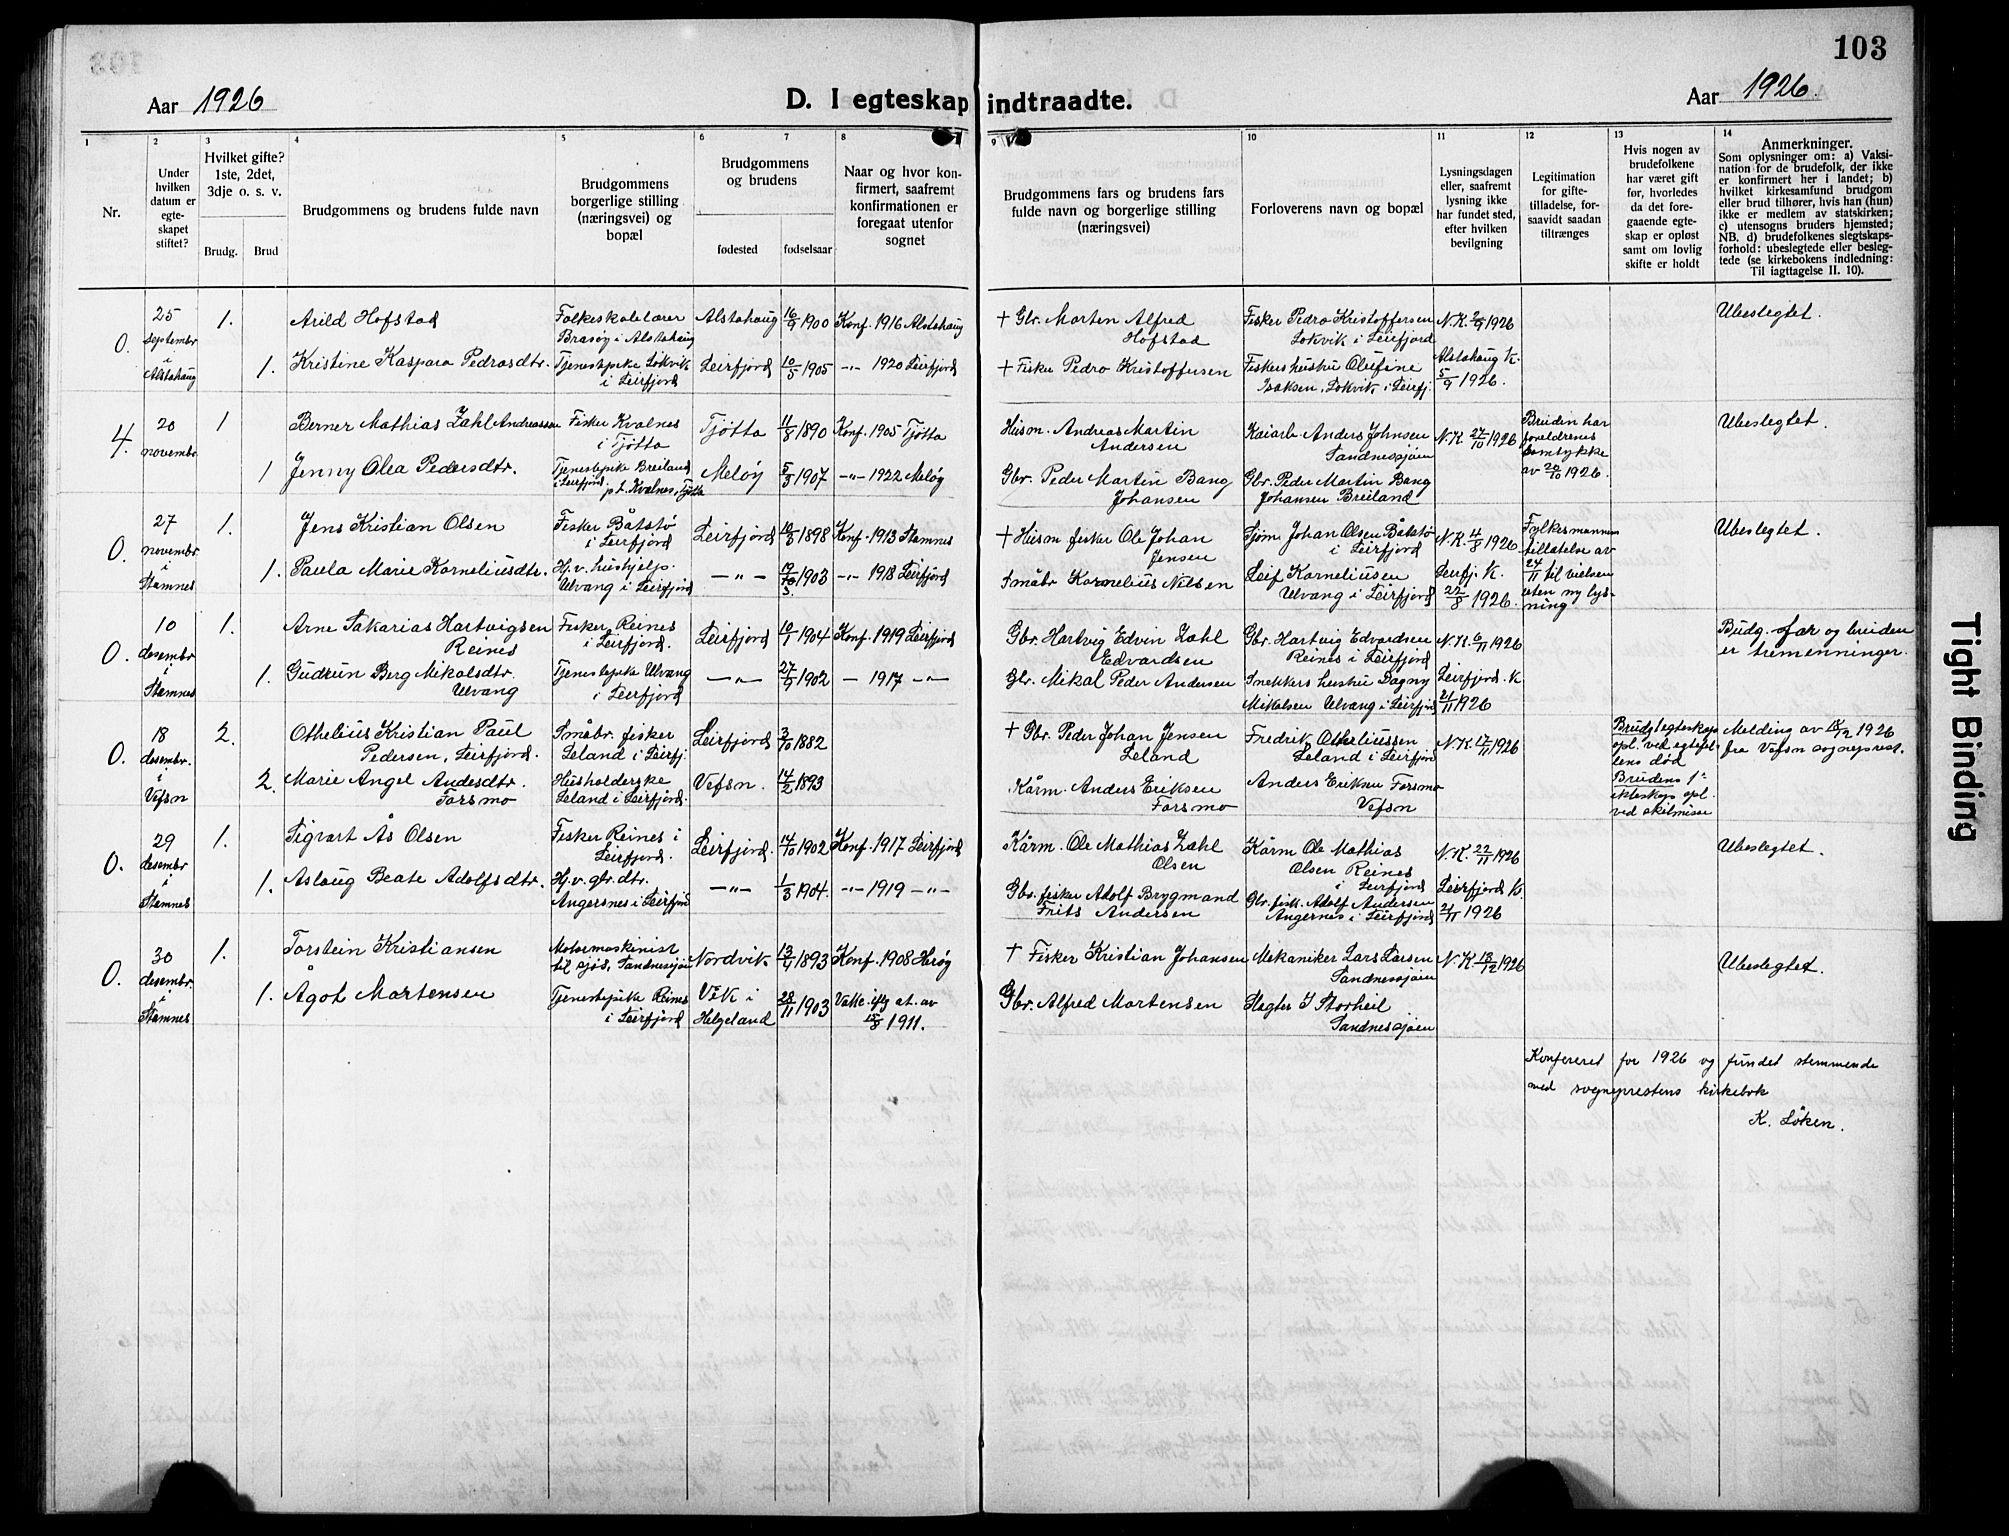 103
Aar 1926
D. I egteskap indtraadte.
Aar 1926.
1
2
3
4
5
6
7
8
9
10
11
12
13
14
Nr.
Under
hvilken
datum er
egte-
skapet
stiftet?
Hvilket gifte?
1ste, 2det,
3dje o. s. v.
Brudg.
Brud
Brudgommens og brudens fulde navn
Brudgommens
borgerlige stilling
(næringsvei) og
bopæl
Brudgommens
og brudens
fødested
fødselsaar
Naar og hvor kon-
firmert, saafremt
konfirmationen er
foregaat utenfor
sognet
Brudgommens fars og brudens fars
fulde navn og borgerlige stilling
(næringsvei)
Forloverens navn og bopæl
Lysningsdagen
eller, saafremt
lysning ikke
har fundet sted,
efter hvilken
bevilgning
Legitimation
for gifte-
tilladelse, for-
saavidt saadan
tiltrænges
Hvis nogen av
brudefolkene
har været gift
før, hvorledes
da det fore-
gaaende egte-
skap er opløst
samt om lovlig
skifte er holdt
Anmerkninger.
Som oplysninger om: a) Vaksi-
nation for de brudefolk, der ikke
er konfirmert her i landet; b)
hvilket kirkesamfund brudgom
eller brud tilhører, hvis han (hun)
ikke er medlem av statskirken;
c) utensogns bruders hjemsted;
NB. d) brudefolkenes slegtskaps-
forhold: ubeslegtede eller besleg-
tede (se kirkebokens indledning:
Til iagttagelse II. 10).
0.
25
septembr
i
Alstahaug
1.
Arild Hofstad
Folkeskolelærer
Brasøy i Alstahaug
Alstahaug
16/9 1900
Konf. 1916 Alstahaug
+ Gbr. Morten Alfred
Hofstad
Fisker Pedro Kristoffersen
Lokvik i Leirfjord
N.K. 2/9 1926
Ubeslegtet.
1.
Kristine Kaspara Pedrosdtr.
Tjenestepike Lokvik
i Leirfjord
Leirfjord
10/5 1905
-"- 1920 Leirfjord
+ Fisker Pedro Kristoffersen
Fiskers hustru Olufine
Isaksen, Lokvik i Leirfj.
Alstahaug K.
5/9 1926.
4.
20
novembr.
1
Berner Mathias Zahl Andreassen
Fisker Kvalnes
i Tjøtta
Tjøtta
11/8 1890
Konf. 1905 Tjøtta
Husm. Andreas Martin
Andersen
Kaiarb. Anders Johnsen
Sandnessjøen
N.K. 27/10 1926
Bruden har
foreldrenes
samtykke
av 20/10 1926.
Ubeslegtet.
1
Jenny Olea Pedersdtr.
Tjenestepike Breiland
i Leirfjord
p.t. Kvalnes, Tjøtta
Meløy
5/3 1907
-"- 1922 Meløy
Gbr. Peder Martin Bang
Johansen
Gbr. Peder Martin Bang
Johansen Breiland
0.
27
novembr.
i
Stamnes
1.
Jens Kristian Olsen
Fisker Båtstø
i Leirfjord
Leirfjord
Konf. 1913 Stamnes
+ Husm fisker Ole Johan
Jensen
Sjøm. Johan Olsen Båtstø
i Leirfjord
N.K. 4/8 1926
Fylkesmannens
tillatelse av
24/11 til vielsen
uten ny lys-
ning
Ubeslegtet.
1.
Paula Marie Korneliusdtr.
Hj.v. hushjelp.
Ulvang i Leirfjord
-"-
1903
-"- 1918 Leirfjord
Småbr. Kornelius Nilsen
Leif Korneliusen
Ulvang i Leirfjord
Leirfj. K.
22/8 1926.
0.
10
desembr
i
Stamnes
1.
Arne Sakarias Hartvigsen
Reines
Fisker Reines
i Leirfjord.
Leirfjord
10/1 1904
Konf. 1919 Leirfjord
Gbr. Hartvig Edvin Zahl
Edvardsen
Gbr. Hartvig Edvardsen
Reines i Leirfjord
N.K. 6/11 1926
Budg. far og bruden
er tremenninger.
1.
Gudrun Berg Mikalsdtr.
Ulvang
Tjenestepike Ulvang
i Leirfjord
-"-
27/9 1902
- 1917 -"-
Gbr. Mikal Peder Andersen
Snekkers hustru Dagny
Mikalsen Ulvang i Leirfjord
Leirfjord. K
21/11 1926
0.
18
desembr.
i
Vefsn
2.
Othelius Kristian Paul
Pedersen, Leirfjord.
Småbr. fisker
Leland i Leirfj.
Leirfjord
3/10 1882
+ Gbr. Peder Johan Jensen
Leland
Fredrik Otheliussen
Leland i Leirfjord
N.K. 17/11 1926
Brudg. 1 egteskap
opl. ved egtefel-
lens død
Melding av 18/12 1926
fra Vefsn sogneprest.
2.
Marie Angel Andersdtr.
Forsmo
Husholderske
Leland i Leirfjord.
Vefsn.
14/2 1893
Kårm. Anders Eriksen
Forsmo
Anders Eriksen Forsmo
Vefsn
Brudens 1ᵉ
ekteskap opl.
ved skilmisse
0.
29
desembr
i
Stamnes
1.
Sigvart Ås Olsen
Fisker Reines i
Leirfjord.
Leirfjord.
14/10 1902
Konf. 1917 Leirfjord
Kårm. Ole Mathias Zahl
Olsen
Kårm Ole Mathias
Olsen Reines
i Leirfjord
N.K. 22/11 1926
Ubeslegtet.
1.
Aslaug Beate Adolfsdtr.
Hj.v. gbr.dtr.
Angersnes i Leirfjord
-"-
1/3 1904.
-"- 1919 -"-
Gbr. fisker Adolf Brygmand
Frits Andersen
Gbr. fisk. Adolf Andersen
Angernes i Leirfjord
Leirfjord K.
21/11 1926
0.
30
desembr.
i
Stamnes
1.
Torstein Kristiansen
Motormaskinist
til sjøs, Sandnessjøen
Nordvik
13/4 1893
Konf. 1908 Herøy
+ Fisker Kristian Johansen
Mekaniker Lars Larsen
Sandnessjøen
N.K. 13/12 1926
Ubeslegtet.
1.
Ågot Martensen
Tjenestepike Reines
i Leirfjord
Vik i
Helgeland
28/11 1903
Vakc. iflg at. av
15/8 1911.
Gbr. Alfred Mortensen
Slagter I Storheil
Sandnessjøen
Konfereret for 1926 og fundet stemmende
med sogneprestens kirkebok
K. Løken.
Tight Binding